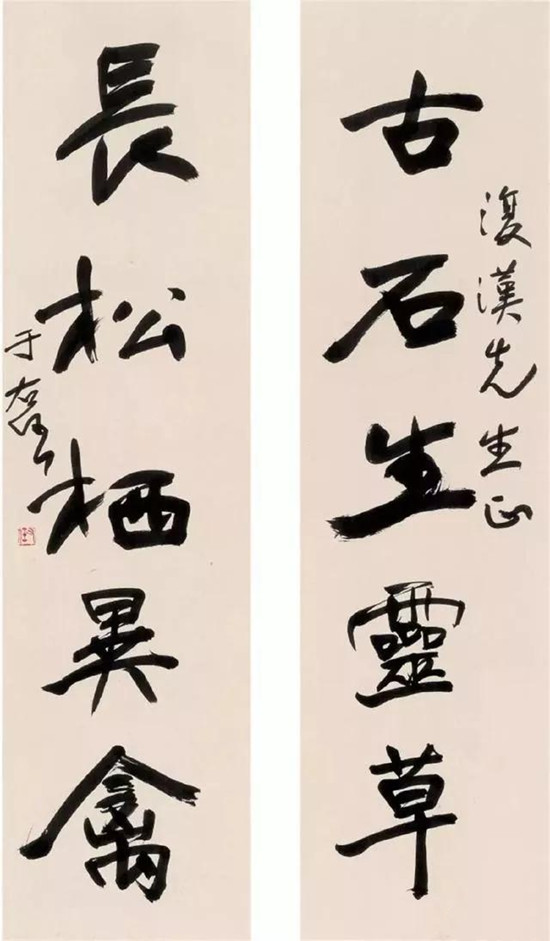 復漢先生正
古石生靈草
長松栖異禽
于右任